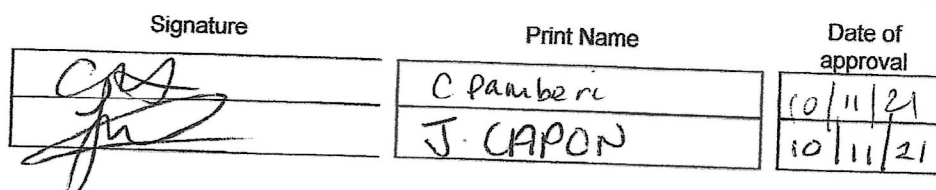 Signature Print Name Date of approval
C Pamberi 10/11/21
J. CAPON 10/11/21